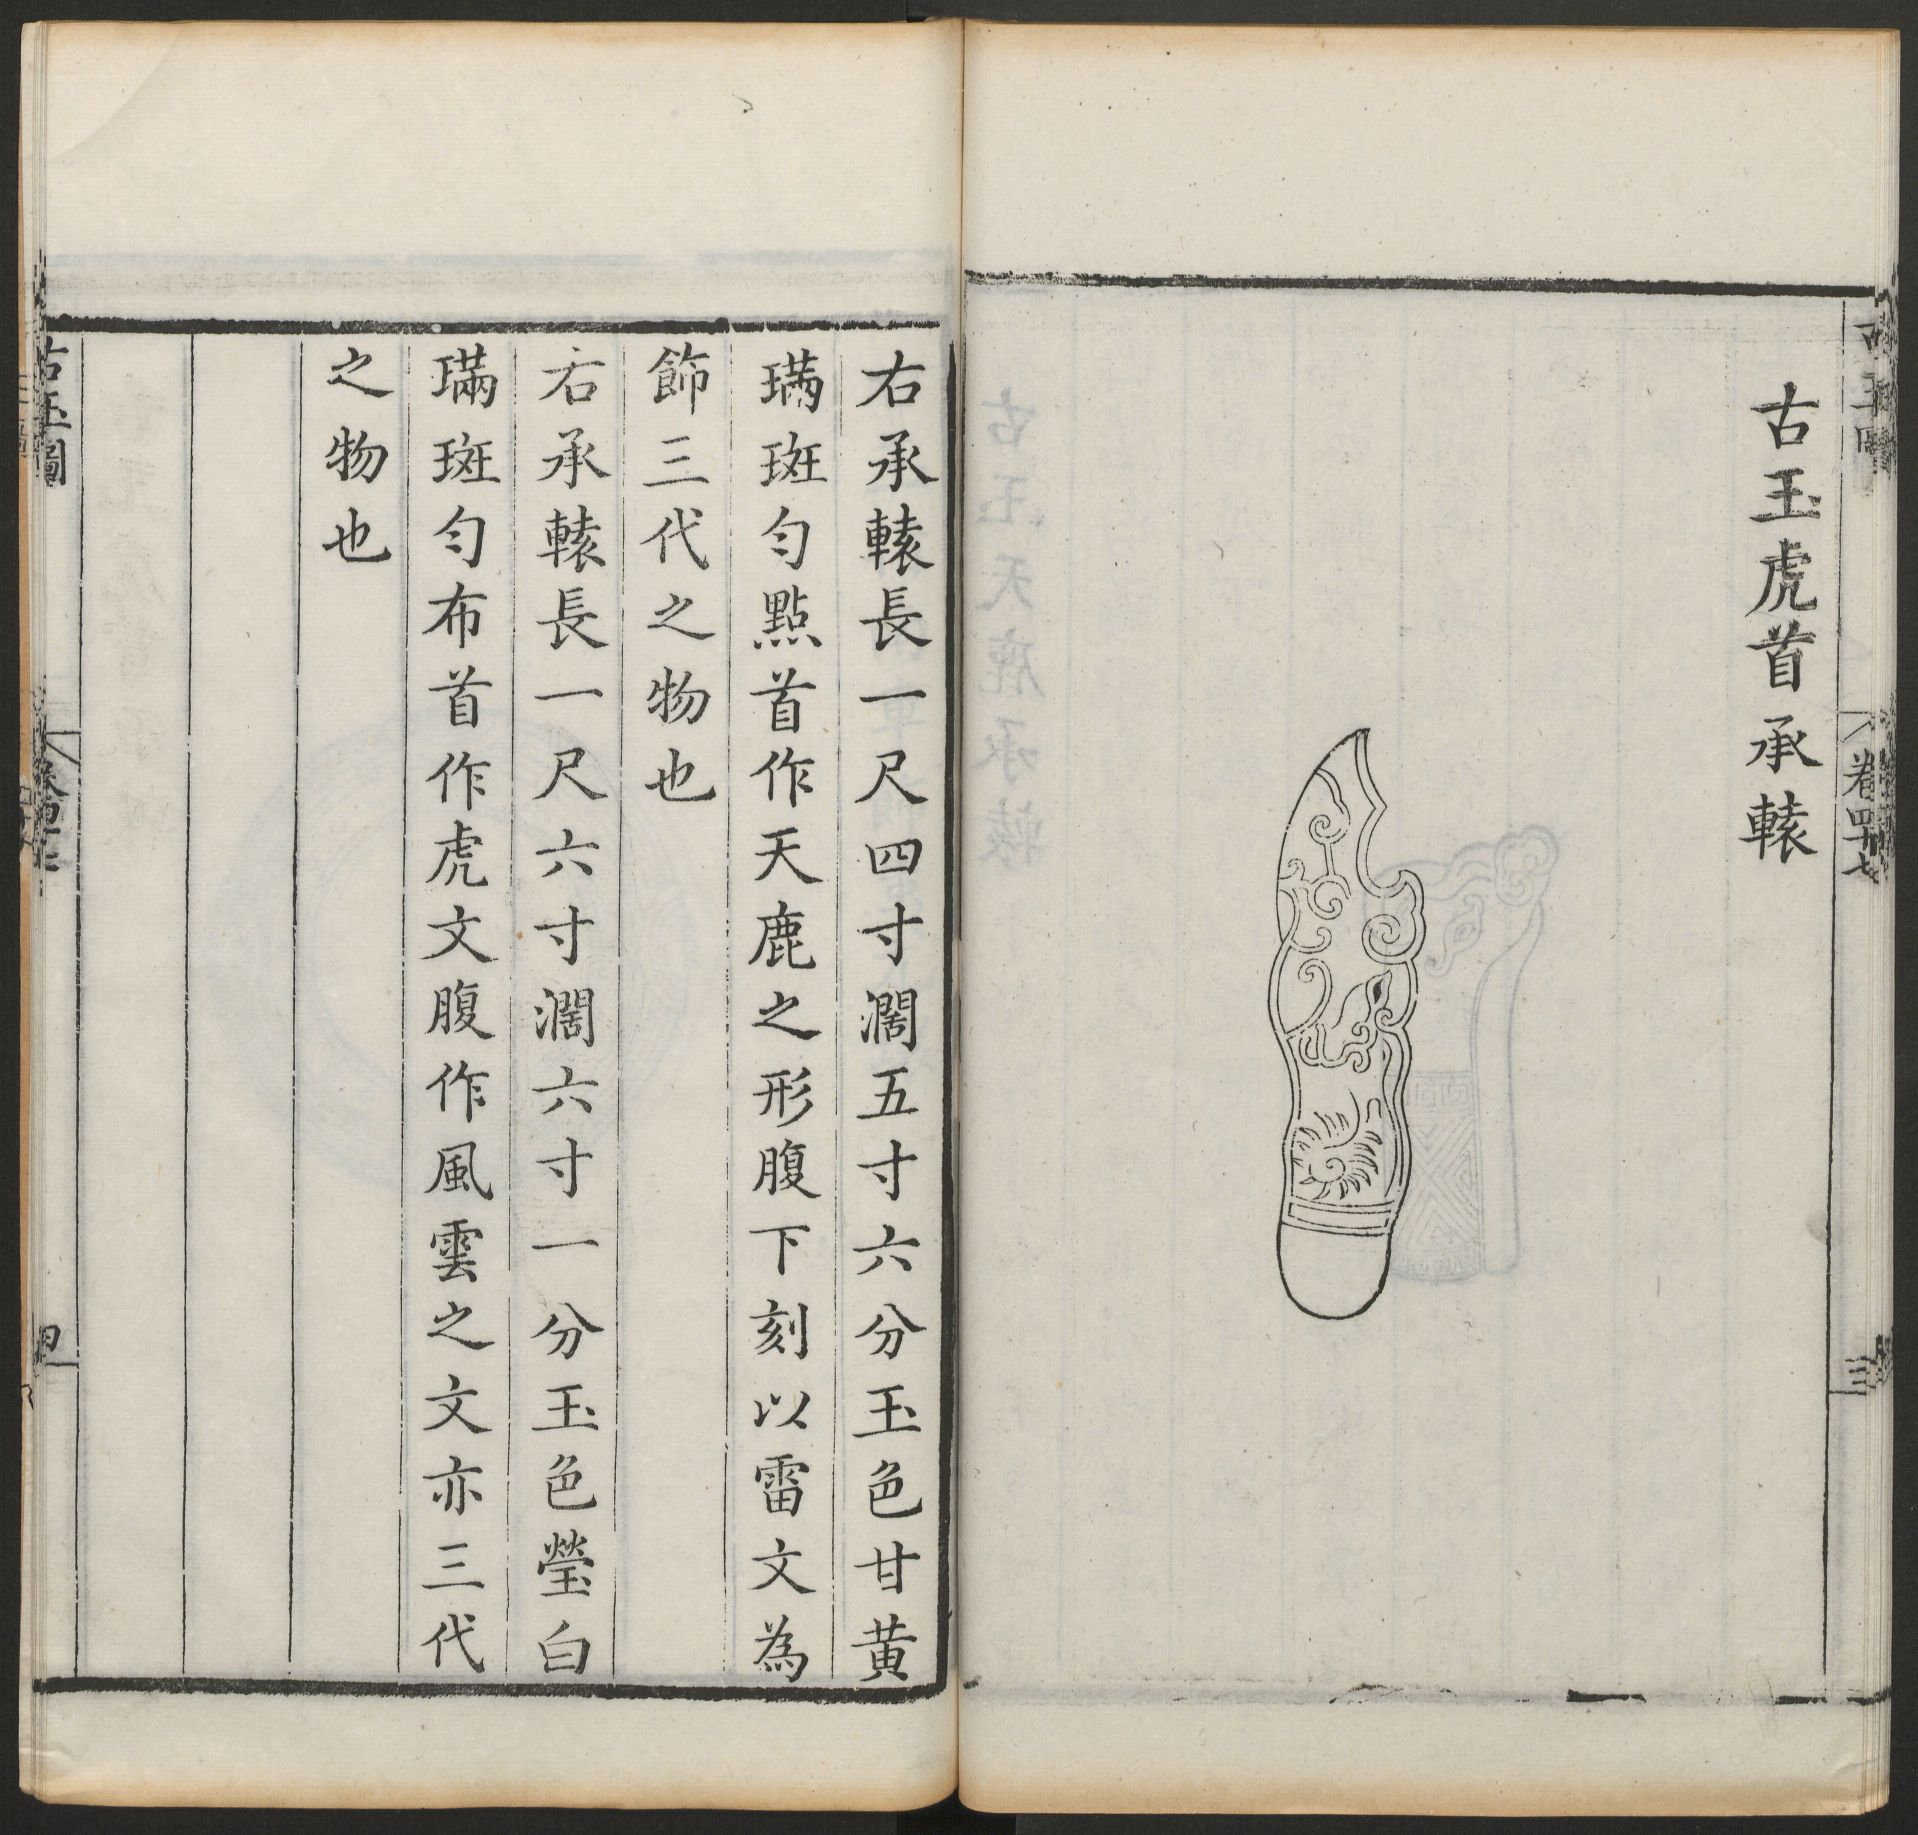 古玉圖
卷四十七
三
古玉虎首承轅
右承轅長一尺四寸濶五寸六分玉色甘黄
璊斑勻點首作天鹿之形腹下刻以雷文為
飾三代之物也
右承轅長一尺六寸濶六寸一分玉色瑩白
璊斑勻布首作虎文腹作風雲之文亦三代
之物也
古玉圖
卷四十七
四